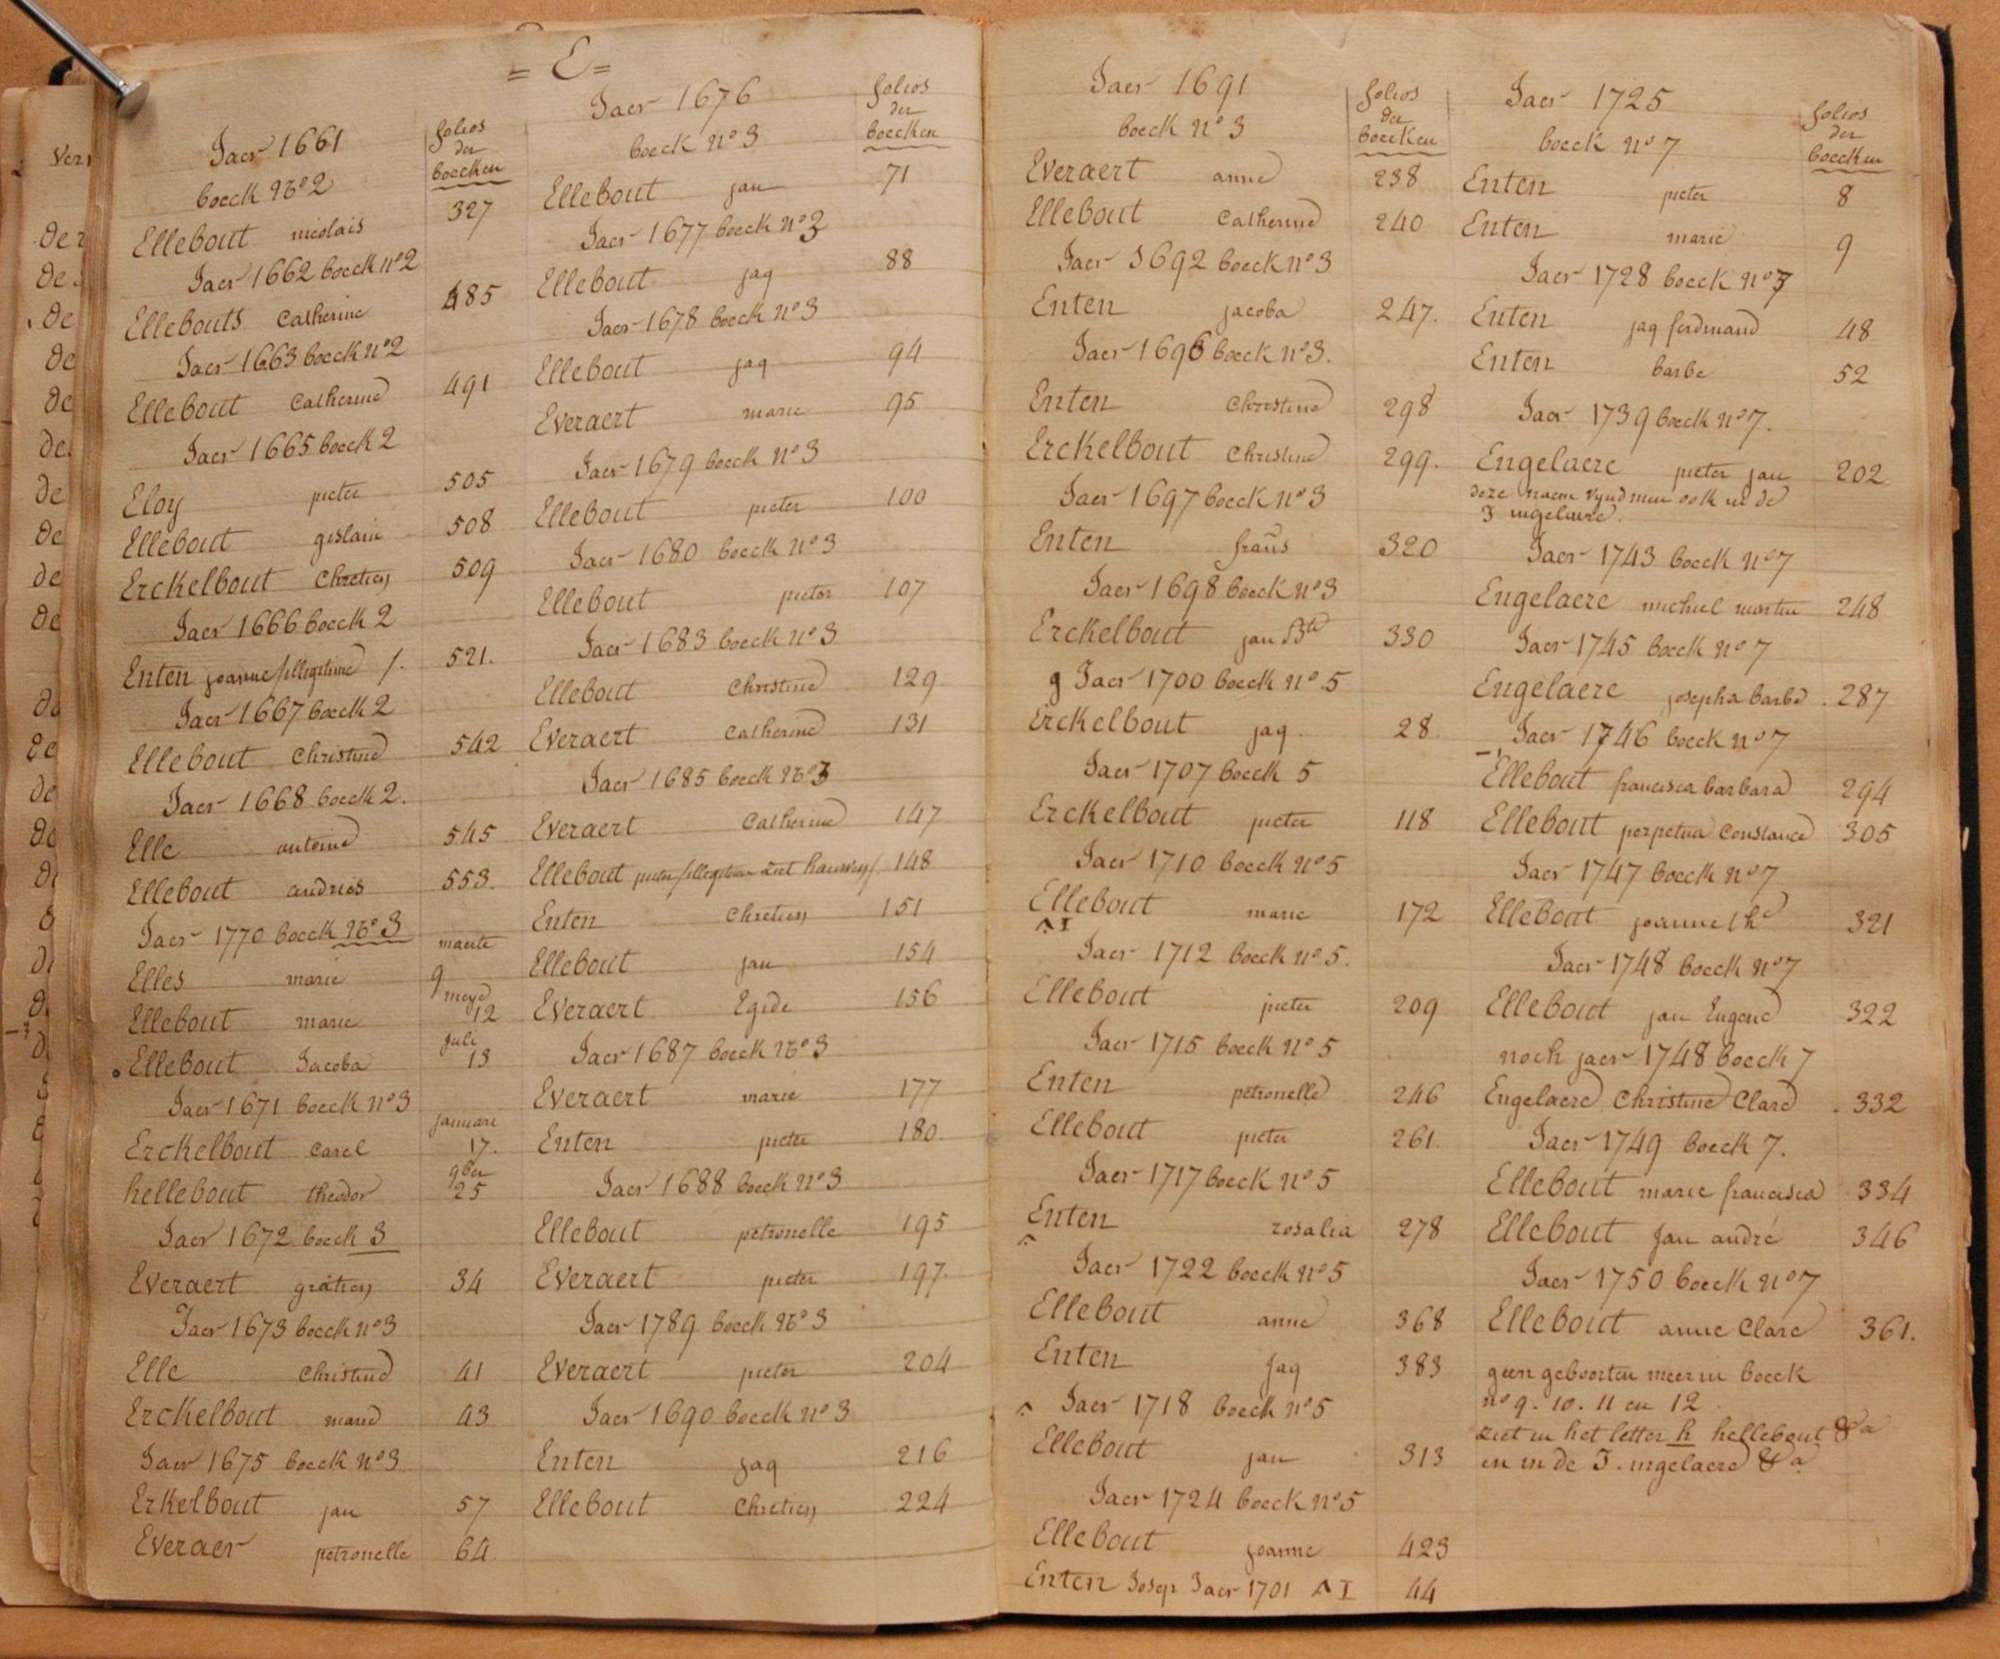 = E =
Jaer 1661
folios
der
boecken
boeck No 2
Ellebout nicolais 327
Jaer 1662 boeck no 2
Ellebouts Catherine 485
Jaer 1663 boeck no 2
Ellebout Catherine 491
Jaer 1665 boeck 2
Eloy pieter 505
Ellebout gislain 508
Erckelbout Chretien 509
Jaer 1666 boeck 2
Enten joanne /illegitime/. 521.
Jaer 1667 boeck 2
Ellebout Christine 542
Jaer 1668 boeck 2.
Elle antoine 545
Ellebout andries 553.
Jaer 1770 boeck No 3
maerte
Elles marie 9
meye
Ellebout marie 12
juli
Ellebout Jacoba 13
Jaer 1671 boeck no 3
januari
Erckelbout Carel 17.
9ber
hellebout theodor 25
Jaer 1672 boeck 3
Everaert gratien 34
Jaer 1673 boeck no 3
Elle Christine 41
Erckelbout marie 43
Jaer 1675 boeck no 3
Erkelbout jan 57
Everaer petronelle 64
Jaer 1676
folios
der
boecken
boeck no 3
Ellebout jan 71
Jaer 1677 boeck no 3
Ellebout jaq 88
Jaer 1678 boeck no 3
Ellebout jaq 94
Everaert marie 95
Jaer 1679 boeck no 3
Ellebout pieter 100
Jaer 1680 boeck no 3
Ellebout pieter 107
Jaer 1683 boeck no 3
Ellebout Christine 129
Everaert Catherine 131
Jaer 1685 boeck No 3
Everaert Catherine 147
Ellebout pieter /illegitieme ziet 148
Enten Chretien 151
Ellebout jan 154
Everaert Egide 156
Jaer 1687 boeck No 3
Everaert marie 177
Enten pieter 180.
Jaer 1688 boeck no 3
Ellebout petronelle 195
Everaert pieter 197.
Jaer 1789 boeck No 3
Everaert pieter 204
Jaer 1690 boeck no 3
Enten jaq 216
Ellebout Chretien 224
Jaer 1691
folios
der
boecken
boeck no 3
Everaert anne 238
Ellebout Catherine 240
Jaer 1692 boeck no 3
Enten jacoba 247.
Jaer 1696 boeck no 3.
Enten Christine 298
Erckelbout Christine 299.
Jaer 1697 boeck no 3
Enten frañs 320
Jaer 1698 boeck no 3
Erckelbout jan Bte 330
Jaer 1700 boeck no 5
Erckelbout jaq. 28
Jaer 1707 boeck 5
Erckelbout pieter 118
Jaer 1710 boeck no 5
Ellebout marie 172
^ I
Jaer 1712 boeck no 5.
Ellebout pieter 209
Jaer 1715 boeck no 5
Enten petronelle 246
Ellebout pieter 261.
Jaer 1717 boeck no 5
Enten rosalia 278
^
Jaer 1722 boeck no 5
Ellebout anne 368
Enten Jaq 383
^ Jaer 1718 boeck no 5
Ellebout jan 313
Jaer 1724 boeck no 5
Ellebout joanne 423
Enten Josep Jaer 1701 ^ I 44
Jaer 1725
folios
der
boecken
boeck no 7
Enten pieter 8
Enten marie 9
Jaer 1728 boeck no 7
Enten jaq ferdinand 48
Enten barbe 52
Jaer 1739 boeck no 7.
Engelaere pieter jan 202
deze naem vynd men ook in de
I ingelaere.
Jaer 1743 boeck no 7
Engelaere michiel martin 248
Jaer 1745 boeck no 7
Engelaere josepha barbe. 287
Jaer 1746 boeck no 7
Ellebout francisca barbara 294
Ellebout perpetua Constance 305
Jaer 1747 boeck no 7
Ellebout joanne the 321
Jaer 1748 boeck no 7
Ellebout jan Eugene 322
noch jaer 1748 boeck 7
Engelaere Christine Clare. 332
Jaer 1749 boeck 7.
Ellebout marie francisca 334
Ellebout Jan andré 346
Jaer 1750 boeck no 7
Ellebout anne Clare 361.
geen geboorten meer in boeck
no 9. 10. 11 en 12
ziet in het letter h hellebout &a
en in de I. ingelaere &a